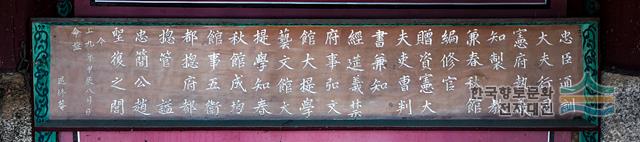 忠臣通訓
大夫行
憲府執
知製敎
兼春秋館
編修官
贈資憲大
夫吏曹判
書兼知
經筵義禁
府事弘文
館大提學
藝文館大
提學知春
秋館成均
館事五衛
都摠府都
摠管 謚
忠簡公趙
聖復之閭
上九年辰八月日
命旌
한국향토문화전자대전